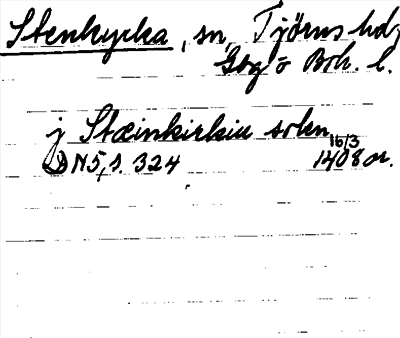 Stenkyrka, sn, Tjörns hd,
Gbg o Boh. l.
j Stæinkirkiu sokn
DN 5, s. 324 16/3 1408 or.